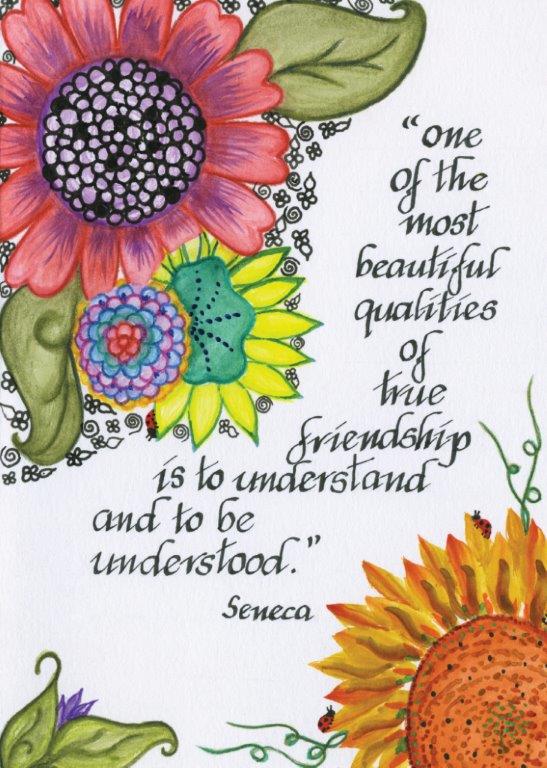 "one
of the
most
beautiful
qualities
of
true
friendship
is to understand
and to be
understood."
Seneca